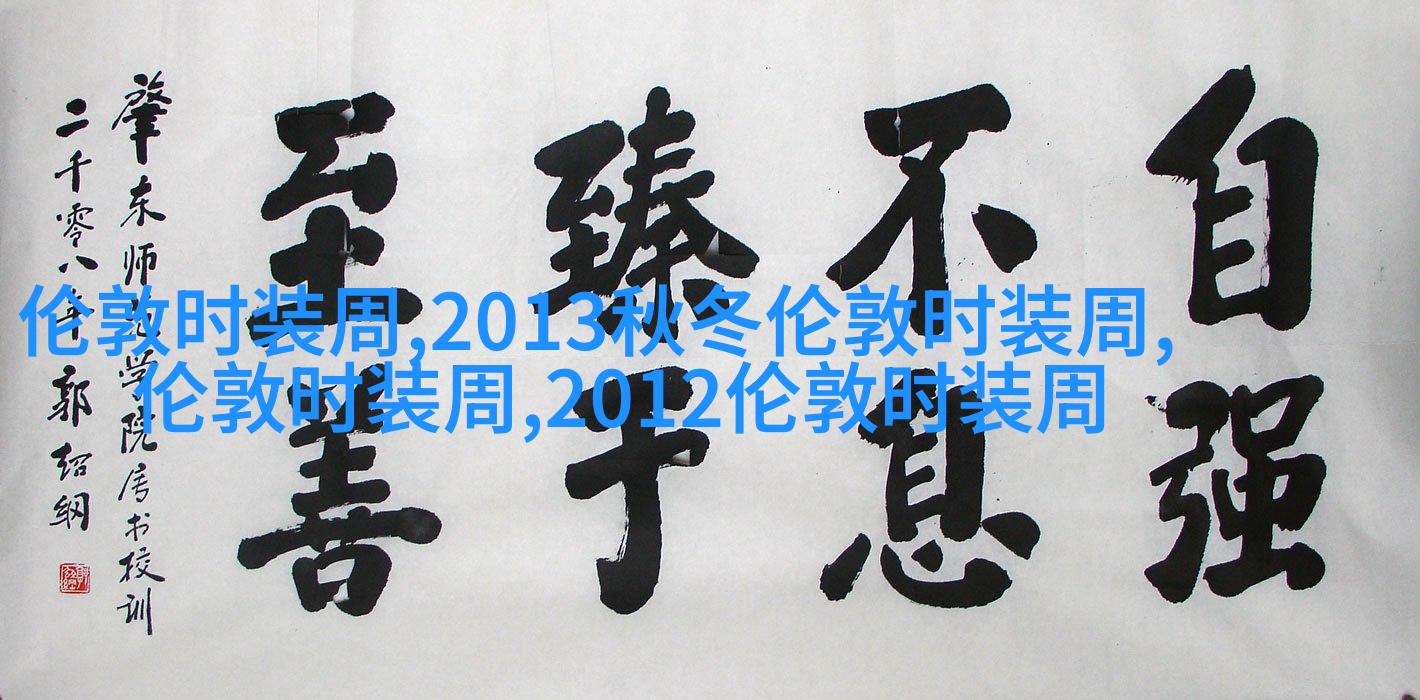 伦敦时装周,2013秋冬伦敦时装周,
伦敦时装周,2012伦敦时装周
自强
不息
臻于
至善
肇东师范学院书校训
二千零八年郭绍纲